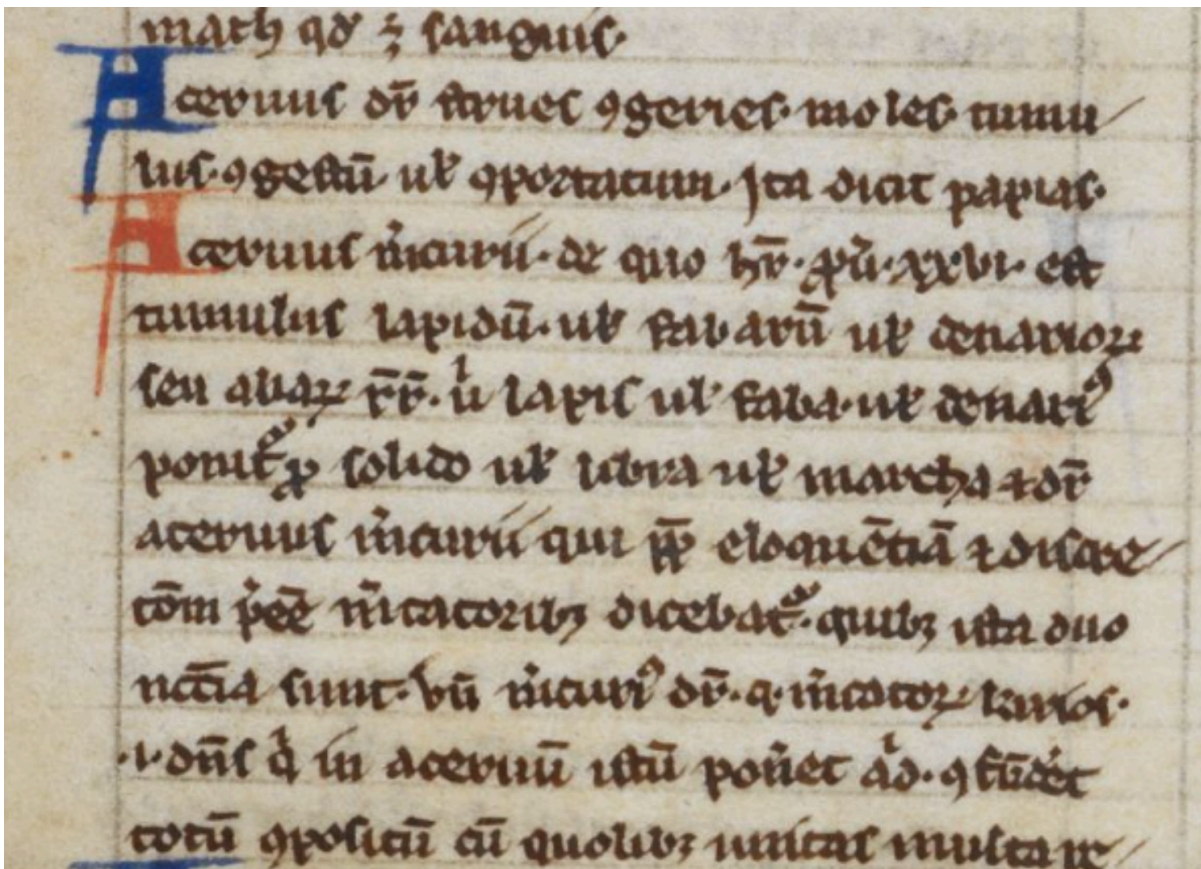 math qđ ꝫ sanguis·
Aceruus dr̄ strues ꝯgeries· moles· tumu
lus· ꝯgestū ul̛ ꝯportatum· Ita dicit papias·
Aceruus m̄curii· de quo hr̄· ꝓu̾· xxvi· est
tumulus lapidū· ul̛ fabarū ul̛ denarioꝝ
seu aliaꝝ rr̄· uͥ lapis ul̛ faba· ul̛ denariꝰ
ponit᷑ ꝓ solido ul̛ libra ul̛ marcha ⁊ dr̄
aceruus m̄curii qui ꝓp̄ eloquētiā ⁊ discre
tōm p̄eē m̄catoribꝫ dicebat᷑· quibꝫ ista duo
nccīa sunt· vn̄ m̄curiꝰ dr̄· q· m̄catoꝝ kirios·
·i· dn̄s qͥ in aceruū istū pon̄et aͥd· ꝯfūdet
totū ꝯpositū cū quolibꝫ unitas multa re